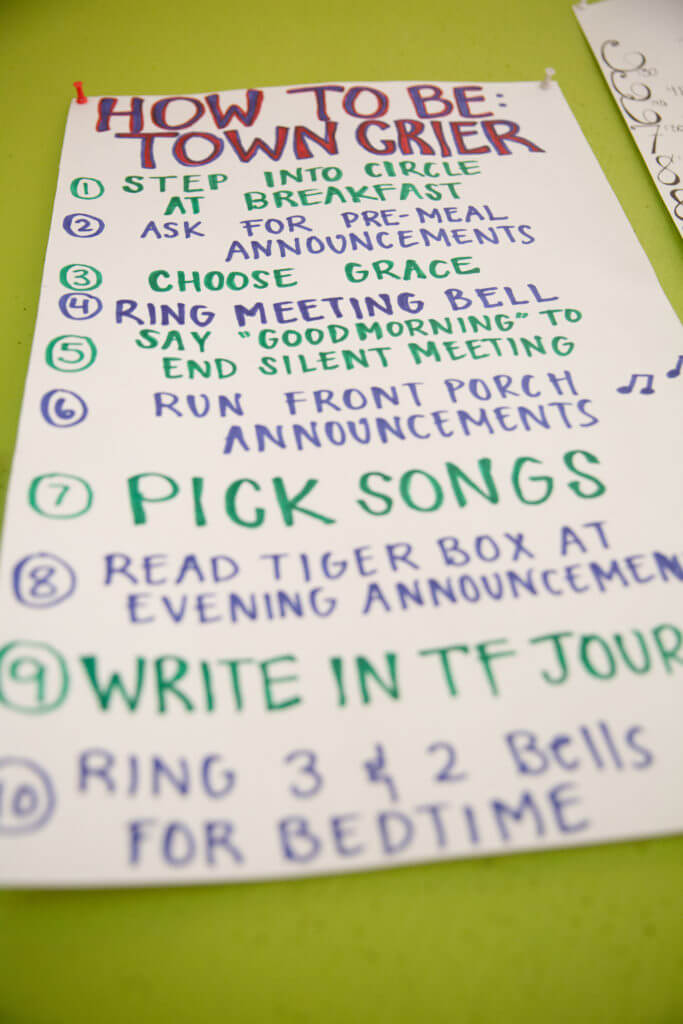 HOW TO BE:
TOWN CRIER
1 STEP INTO CIRCLE
AT BREAKFAST
2 ASK FOR PRE-MEAL
ANNOUNCEMENTS
3 CHOOSE GRACE
4 RING MEETING BELL
5 SAY "GOODMORNING" TO
END SILENT MEETING
6 RUN FRONT PORCH
ANNOUNCEMENTS
7 PICK SONGS
8 READ TIGER BOX AT
EVENING ANNOUNCEMEN
9 WRITE IN TF JOUR
10 RING 3 & 2 Bells
FOR BEDTIME